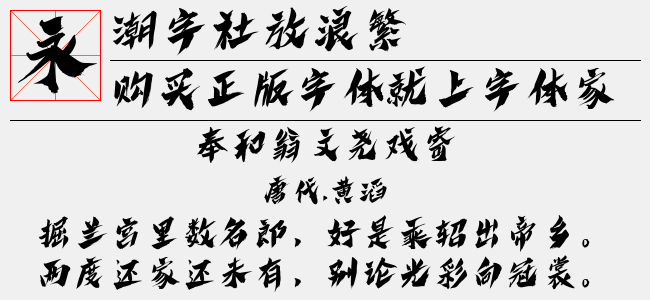 永
潮字社放浪繁
购买正版字体就上字体家
奉和翁文尧戏寄
唐代.黄滔
掘兰宫里数名郎，好是乘轺出帝乡。
两度还家还未有，别论光彩向冠裳。